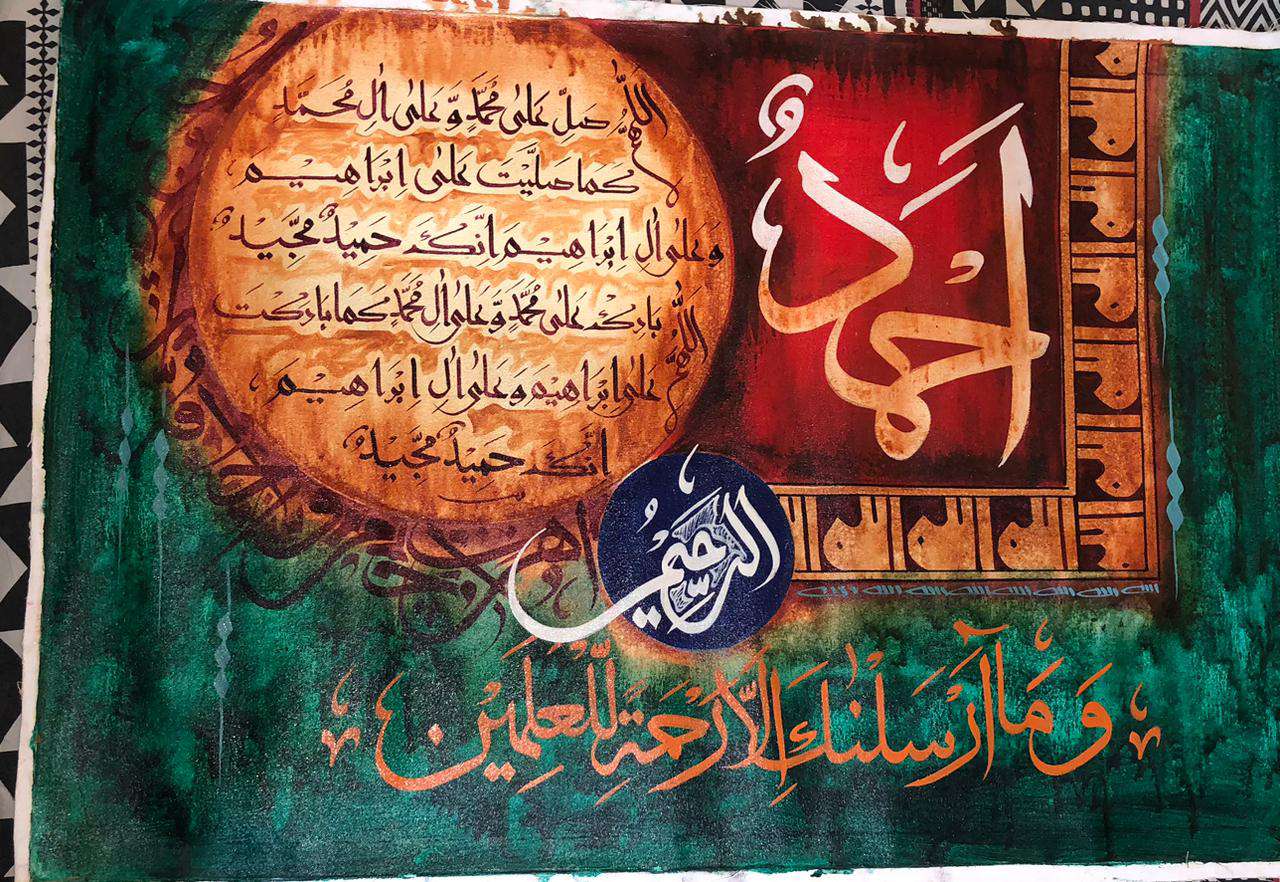 اللّٰهُمَّ صَلِّ عَلٰی مُحَمَّدٍ وَّ عَلٰی اٰلِ مُحَمَّدٍ
کَمَا صَلَّیْتَ عَلٰی اِبْرَاهِیْمَ
وَ عَلٰی اٰلِ اِبْرَاهِیْمَ اِنَّکَ حَمِیْدٌ مَّجِیْدٌ
اللّٰهُمَّ بَارِكْ عَلٰی مُحَمَّدٍ وَّ عَلٰی اٰلِ مُحَمَّدٍ کَمَا بَارَکْتَ
عَلٰی اِبْرَاهِیْمَ وَ عَلٰی اٰلِ اِبْرَاهِیْمَ
اِنَّکَ حَمِیْدٌ مَّجِیْدٌ
اَحْمَدُ
الرَّحِیْمُ
وَ مَاۤ اَرْسَلْنٰكَ اِلَّا رَحْمَةً لِّلْعٰلَمِیْنَ